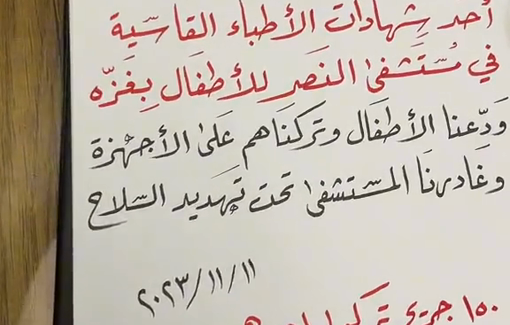 أحد شهادات الأطباء القاسية
في مُستشفى النَصر للأطفال بِغَزّه
وَدّعنا الأطفال وتركنَاهم عَلىٰ الأجهزة
وغَادرنَا المستشفىٰ تحت تهديد السّلاح
٢٠٢٣/١١/١١
١٥٠